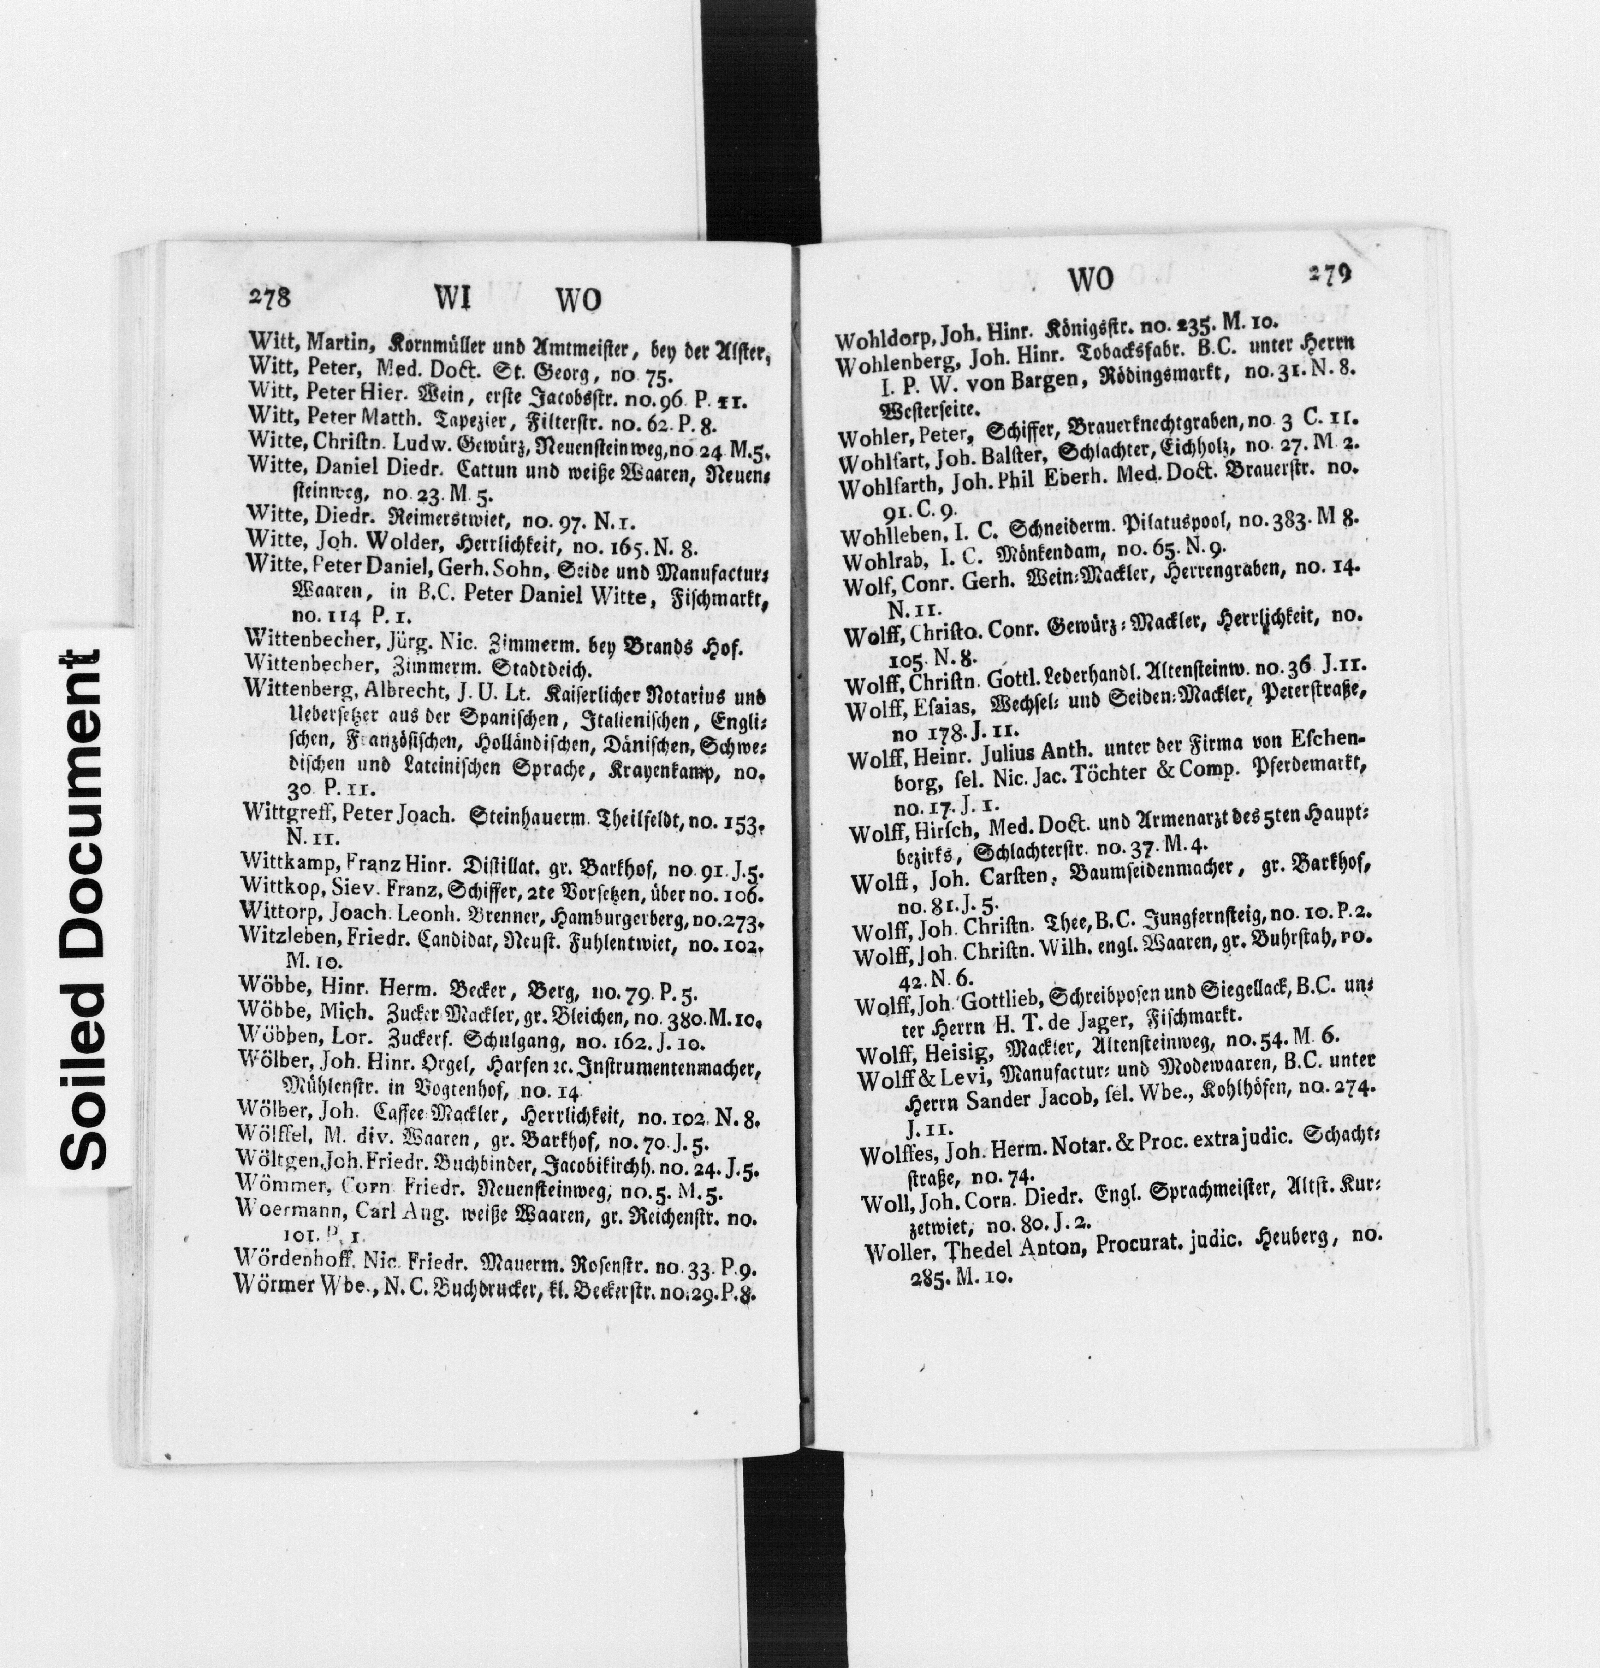 Soiled Document
278 WI WO
Witt, Martin, Kornmüller und Amtmeister, bey der Alster,
Witt, Peter, Med. Doct. St. Georg, no 75.
Witt, Peter Hier. Wein, erste Jacobsstr. no. 96 P. 11.
Witt, Peter Matth. Tapezier, Filterstr. no. 62. P. 8.
Witte, Christn. Ludw. Gewürz, Neuensteinweg, no 24 M. 5.
Witte, Daniel Diedr. Cattun und weiße Waaren, Neuen-
steinweg, no. 23. M. 5.
Witte, Diedr. Reimerstwiet, no. 97. N. 1.
Witte, Joh. Wolder, Herrlichkeit, no. 165. N. 8.
Witte, Peter Daniel, Gerh. Sohn, Seide und Manufactur-
Waaren, in B.C. Peter Daniel Witte, Fischmarkt,
no. 114 P. 1.
Wittenbecher, Jürg. Nic. Zimmerm. bey Brands Hof.
Wittenbecher, Zimmerm. Stadtdeich.
Wittenberg, Albrecht, J. U. Lt. Kaiserlicher Notarius und
Uebersetzer aus der Spanischen, Italienischen, Engli-
schen, Französischen, Holländischen, Dänischen, Schwe-
dischen und Lateinischen Sprache, Krayenkamp, no.
30 P. 11.
Wittgreff, Peter Joach. Steinhauerm. Theilfeldt, no. 153.
N. 11.
Wittkamp, Franz Hinr. Distillat. gr. Barkhof, no. 91. J. 5.
Wittkop, Siev. Franz, Schiffer, 2te Vorsetzen, über no. 106.
Wittorp, Joach. Leonh. Brenner, Hamburgerberg, no. 273.
Witzleben, Friedr. Candidat, Neust. Fuhlentwiet, no. 102.
M. 10.
Wöbbe, Hinr. Herm. Becker, Berg, no. 79. P. 5.
Wöbbe, Mich. Zucker-Mackler, gr. Bleichen, no. 380. M. 10.
Wöbben, Lor. Zuckerf. Schulgang, no. 162. J. 10.
Wölber, Joh. Hinr. Orgel, Harfen ꝛc. Instrumentenmacher,
Mühlenstr. in Vogtenhof, no. 14
Wölber, Joh. Caffee-Mackler, Herrlichkeit, no. 102. N. 8.
Wölffel, M. div. Waaren, gr. Barkhof, no. 70. J. 5.
Wöltgen, Joh. Friedr. Buchbinder, Jacobikirchh. no. 24. J. 5.
Wömmer, Corn. Friedr. Neuensteinweg, no. 5. M. 5.
Woermann, Carl Aug. weiße Waaren, gr. Reichenstr. no.
101. P. 1.
Wördenhoff, Nic. Friedr. Mauerm. Rosenstr. no. 33. P. 9.
Wörmer Wbe., N. C. Buchdrucker, kl. Beckerstr. no. 29. P. 8.
WO 279
Wohldorp, Joh. Hinr. Königsstr. no. 235. M. 10.
Wohlenberg, Joh. Hinr. Tobacksfabr. B.C. unter Herrn
I. P. W. von Bargen, Rödingsmarkt, no. 31. N. 8.
Westerseite.
Wohler, Peter, Schiffer, Brauerknechtgraben, no. 3 C. 11.
Wohlfart, Joh. Balster, Schlachter, Eichholz, no. 27. M 2.
Wohlfarth, Joh. Phil Eberh. Med. Doct. Brauerstr. no.
91. C. 9.
Wohlleben, I. C. Schneiderm. Pilatuspool, no. 383. M 8.
Wohlrab, I. C. Mönkendam, no. 65. N. 9.
Wolf, Conr. Gerh. Wein-Mackler, Herrengraben, no. 14.
N. 11.
Wolff, Christo. Conr. Gewürz-Mackler, Herrlichkeit, no.
105. N. 8.
Wolff, Christn. Gottl. Lederhandl. Altensteinw. no. 36 J. 11.
Wolff, Esaias, Wechsel- und Seiden-Mackler, Peterstraße,
no 178. J. 11.
Wolff, Heinr. Julius Anth. unter der Firma von Eschen-
borg, sel. Nic. Jac. Töchter & Comp. Pferdemarkt,
no. 17. J. 1.
Wolff, Hirsch, Med. Doct. und Armenarzt des 5ten Haupt-
bezirks, Schlachterstr. no. 37. M. 4.
Wolff, Joh. Carsten, Baumseidenmacher, gr. Barkhof,
no. 81. J. 5.
Wolff, Joh. Christn. Thee, B.C. Jungfernsteig, no. 10. P. 2.
Wolff, Joh. Christn. Wilh. engl. Waaren, gr. Buhrstah, no.
42. N. 6.
Wolff, Joh. Gottlieb, Schreibposen und Siegellack, B.C. un-
ter Herrn H. T. de Jager, Fischmarkt.
Wolff, Heisig, Mackler, Altensteinweg, no. 54. M. 6.
Wolff & Levi, Manufactur- und Modewaaren, B.C. unter
Herrn Sander Jacob, sel. Wbe., Kohlhöfen, no. 274.
J. 11.
Wolffes, Joh. Herm. Notar. & Proc. extrajudic. Schacht-
straße, no. 74.
Woll, Joh. Corn. Diedr. Engl. Sprachmeister, Altst. Kur-
zetwiet, no. 80. J. 2.
Woller, Thedel Anton, Procurat. judic. Heuberg, no.
285. M. 10.